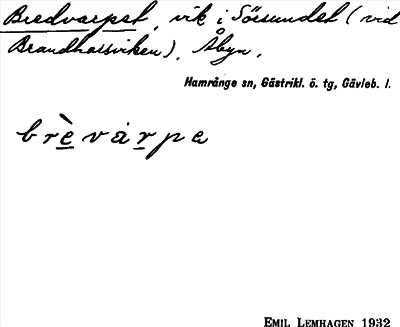 Bredvarpet, vik i Sörsundet (vid
Brandharsviken), Åbyn.
Hamrånge sn, Gästrikl. ö. tg, Gävleb. l.
brèvárpa
EMIL LEMHAGEN 1932